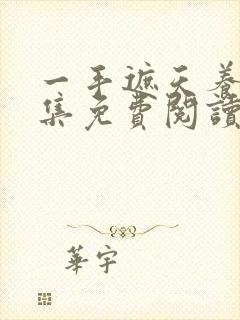 一手遮天養
集免費閱讀
華宇